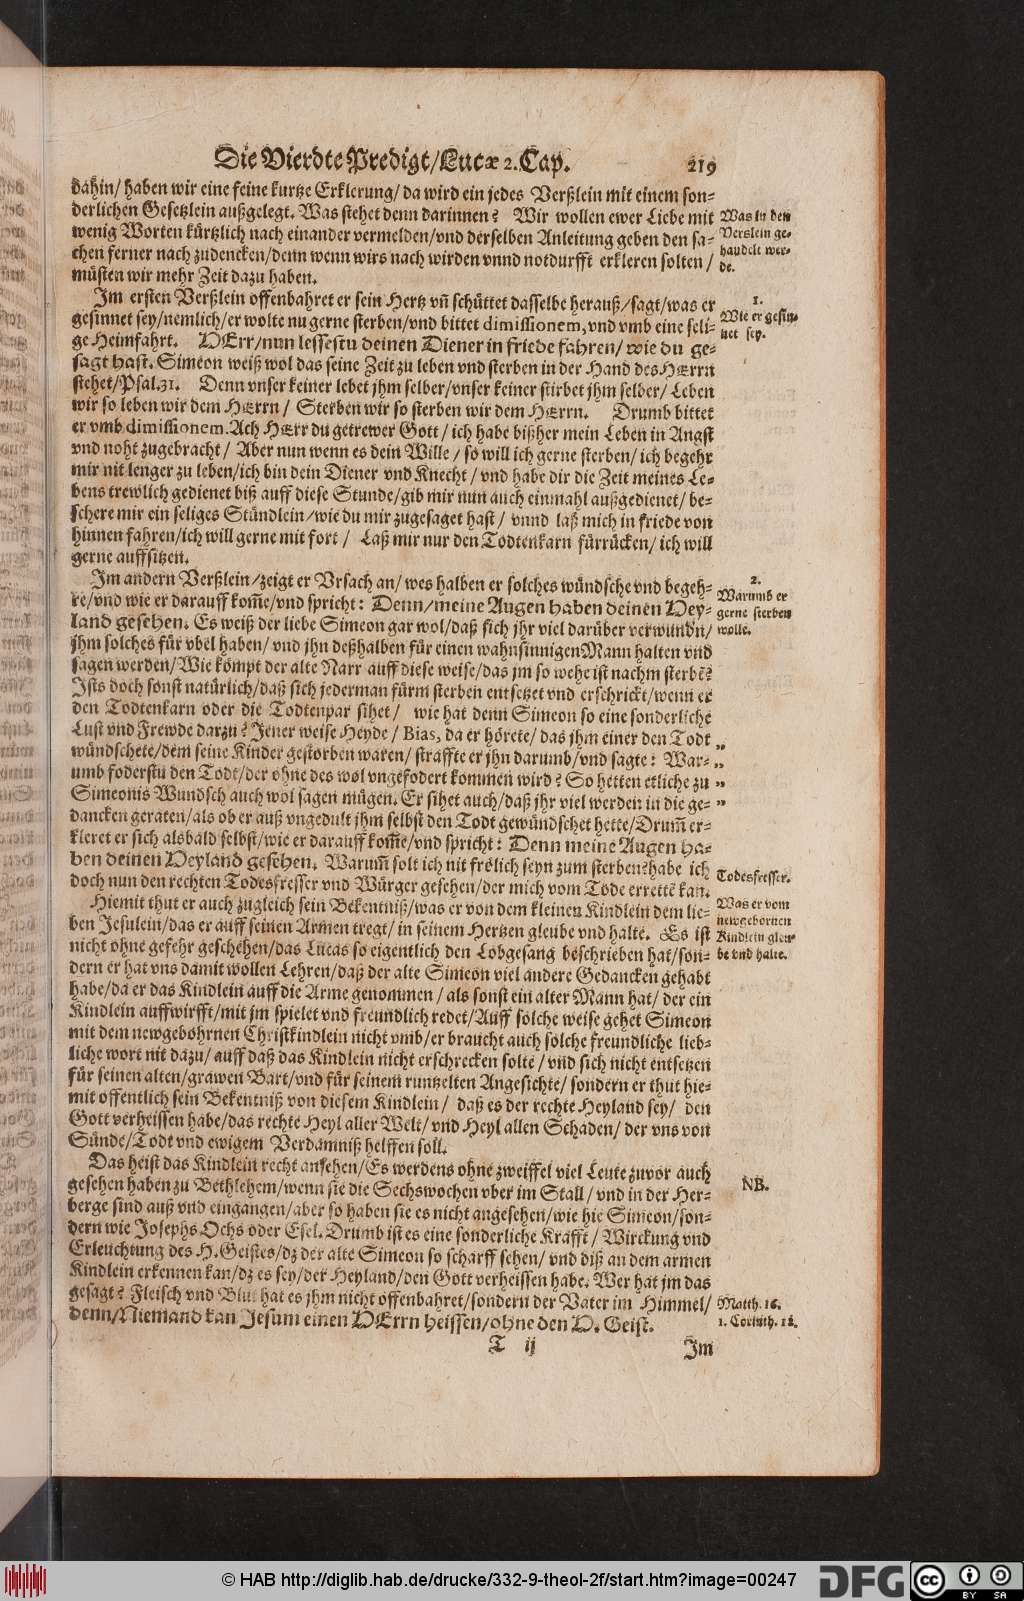 Die Vierdte Predigt/Lucæ 2. Cap. 219
dahin/ haben wir eine feine kurtze Erklerung/ da wird ein jedes Verßlein mit einem son-
derlichen Gesetzlein außgelegt. Was stehet denn darinnen? Wir wollen ewer Liebe mit
wenig Worten kürtzlich nach einander vermelden/vnd derselben Anleitung geben den sa-
chen ferner nach zudencken/denn wenn wirs nach wirden vnnd notdurfft erkleren solten /
müsten wir mehr Zeit dazu haben.
Was in den
Verslein ge-
handelt wer-
de.
Im ersten Verßlein offenbahret er sein Hertz vñ schüttet dasselbe herauß/sagt/was er
gesinnet sey/nemlich/er wolte nu gerne sterben/vnd bittet dimissionem, vnd vmb eine seli-
ge Heimfahrt. HErr/nun lessestu deinen Diener in friede fahren/ wie du ge-
sagt hast. Simeon weiß wol das seine Zeit zu leben vnd sterben in der Hand des HErrn
stehet/Psal.31. Denn vnser keiner lebet jhm selber/vnser keiner stirbet jhm selber/ Leben
wir so leben wir dem HErrn / Sterben wir so sterben wir dem HErrn. Drumb bittet
er vmb dimissionem. Ach HErr du getrewer Gott / ich habe bißher mein Leben in Angst
vnd noht zugebracht / Aber nun wenn es dein Wille / so will ich gerne sterben/ ich begehr
mir nit lenger zu leben/ich bin dein Diener vnd Knecht / vnd habe dir die Zeit meines Le-
bens trewlich gedienet biß auff diese Stunde/gib mir nun auch einmahl außgedienet/ be-
schere mir ein seliges Stündlein/wie du mir zugesaget hast / vnnd laß mich in friede von
hinnen fahren/ich will gerne mit fort / Laß mir nur den Todtenkarn fürrücken/ ich will
gerne auffsitzen.
1.
Wie er gesin-
net sey.
Im andern Verßlein/zeigt er Vrsach an/ wes halben er solches wündsche vnd begeh-
re/vnd wie er darauff kom̃e/vnd spricht: Denn/meine Augen haben deinen Hey-
land gesehen. Es weiß der liebe Simeon gar wol/daß sich jhr viel darüber verwundn/
jhm solches für vbel haben/ vnd jhn deßhalben für einen wahnsinnigen Mann halten vnd
sagen werden/Wie kömpt der alte Narr auff diese weise/das jm so wehe ist nachm sterbē?
Ists doch sonst natürlich/daß sich jederman fürm sterben entsetzet vnd erschrickt/wenn er
den Todtenkarn oder die Todtenpar sihet / wie hat denn Simeon so eine sonderliche
Lust vnd Frewde darzu? Jener weise Heyde / Bias, da er hörete/ das jhm einer den Todt
wündschete/dem seine Kinder gestorben waren/ straffte er jhn darumb/vnd sagte: War- „
umb foderstu den Todt/der ohne des wol vngefodert kommen wird? So hetten etliche zu „
Simeonis Wundsch auch wol sagen mügen. Er sihet auch/daß jhr viel werden in die ge- „
dancken geraten/als ob er auß vngedult jhm selbst den Todt gewündschet hette/Drum̃ er-
kleret er sich alsbald selbst/wie er darauff kom̃e/vnd spricht: Denn meine Augen ha-
ben deinen Heyland gesehen. Warum̃ solt ich nit frölich seyn zum sterben? habe ich
doch nun den rechten Todesfresser vnd Würger gesehen/der mich vom Tode errettē kan.
2.
Warumb er
gerne sterben
wolle.
Todesfresser.
Hiemit thut er auch zugleich sein Bekentniß/was er von dem kleinen Kindlein dem lie-
ben Jesulein/das er auff seinen Armen tregt/ in seinem Hertzen gleube vnd halte. Es ist
nicht ohne gefehr geschehen/das Lucas so eigentlich den Lobgesang beschrieben hat/son-
dern er hat vns damit wollen Lehren/daß der alte Simeon viel andere Gedancken gehabt
habe/da er das Kindlein auff die Arme genommen / als sonst ein alter Mann hat/ der ein
Kindlein auffwirfft/mit jm spielet vnd freundlich redet/Auff solche weise gehet Simeon
mit dem newgebohrnen Christkindlein nicht vmb/er braucht auch solche freundliche lieb-
liche wort nit dazu/ auff daß das Kindlein nicht erschrecken solte / vnd sich nicht entsetzen
für seinen alten/grawen Bart/vnd für seinem runtzelten Angesichte/ sondern er thut hie-
mit offentlich sein Bekentniß von diesem Kindlein / daß es der rechte Heyland sey/ den
Gott verheissen habe/das rechte Heyl aller Welt/ vnd Heyl allen Schaden/ der vns von
Sünde/Todt vnd ewigem Verdamniß helffen soll.
Was er vom
newgebornen
Kindlein gleu-
be vnd halte.
Das heist das Kindlein recht ansehen/Es werdens ohne zweiffel viel Leute zuvor auch
gesehen haben zu Bethlehem/wenn sie die Sechswochen vber im Stall / vnd in der Her-
berge sind auß vnd eingangen/aber so haben sie es nicht angesehen/wie hie Simeon/son-
dern wie Josephs Ochs oder Esel. Drumb ist es eine sonderliche Krafft / Wirckung vnd
Erleuchtung des H. Geistes/dz der alte Simeon so scharff sehen/ vnd diß an dem armen
Kindlein erkennen kan/dz es sey/der Heyland/den Gott verheissen habe. Wer hat jm das
gesagt? Fleisch vnd Blut hat es jhm nicht offenbahret/sondern der Vater im Himmel/
denn/Niemand kan Jesum einen HErrn heissen/ohne den H. Geist.
NB.
Matth. 16.
1. Corinth. 12.
T ij Im
© HAB http://diglib.hab.de/drucke/332-9-theol-2f/start.htm?image=00247
DFG
cc BY SA